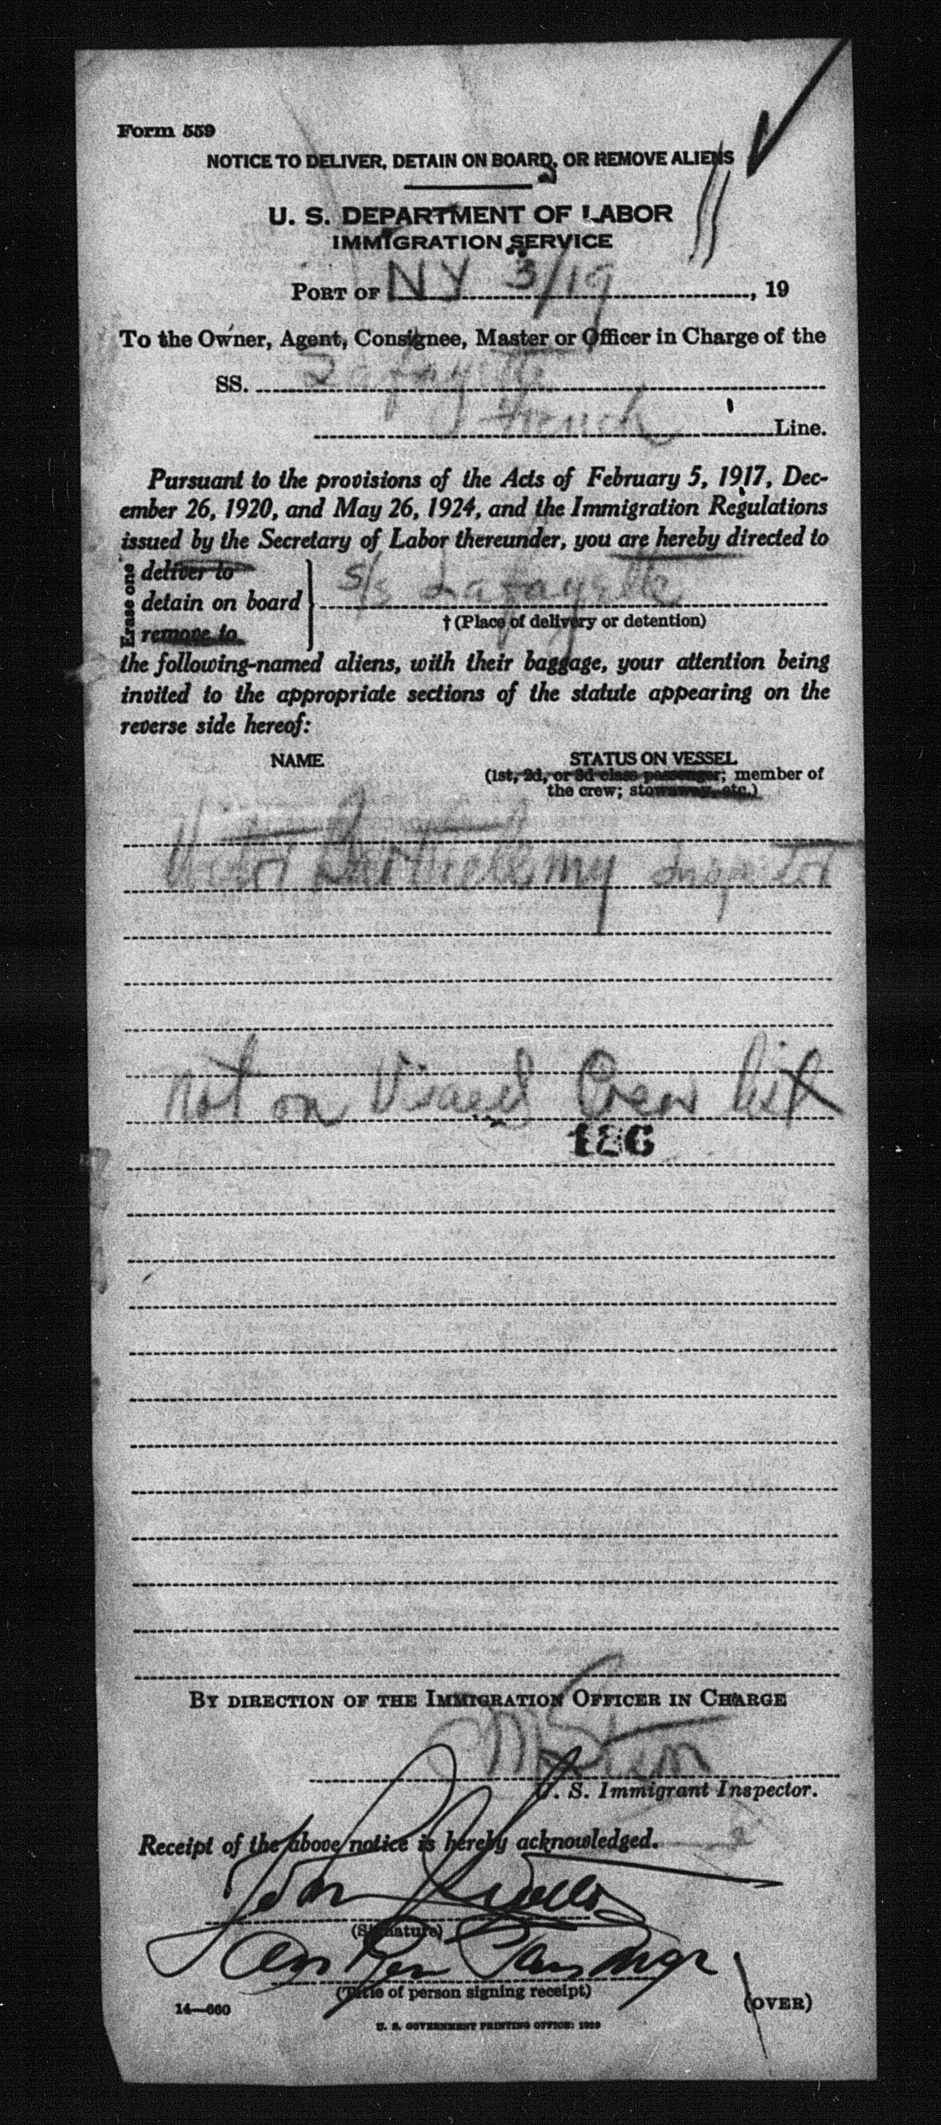 Form 559
NOTICE TO DELIVER, DETAIN ON BOARD, OR REMOVE ALIENS
U. S. DEPARTMENT OF LABOR
IMMIGRATION SERVICE
PORT OF NY 3/19, 19
To the Owner, Agent, Consignee, Master or Officer in Charge of the
SS. Lafayette
French Line.
Pursuant to the provisions of the Acts of February 5, 1917, Dec-
ember 26, 1920, and May 26, 1924, and the Immigration Regulations
issued by the Secretary of Labor thereunder, you are hereby directed to
Erase one
deliver to
detain on board S/S Lafayette
remove to
† (Place of delivery or detention)
the following-named aliens, with their baggage, your attention being
invited to the appropriate sections of the statute appearing on the
reverse side hereof:
NAME STATUS ON VESSEL
(1st, 2d, or 3d class passenger; member of
the crew; stowaway, etc.)
Victor Barthelemy Inspector
not on Visaed Crew list
126
BY DIRECTION OF THE IMMIGRATION OFFICER IN CHARGE
U. S. Immigrant Inspector.
Receipt of the above notice is hereby acknowledged.
(Signature)
(Title of person signing receipt)
14—660 (OVER)
U. S. GOVERNMENT PRINTING OFFICE: 1929